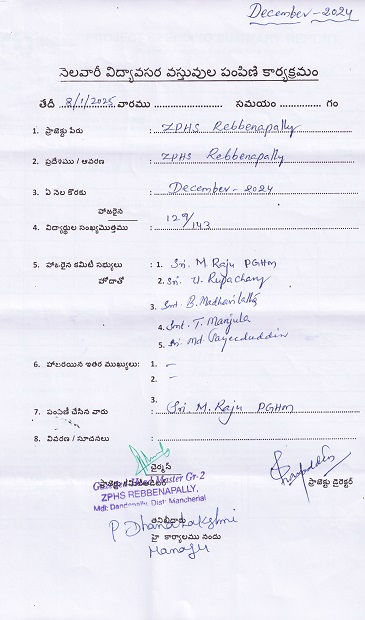 December-2024
నెలవారీ విద్యావసర వస్తువుల పంపిణి కార్యక్రమం
తేదీ 8/1/2025 వారము .................. సమయం .................. గం
1. ప్రాజెక్టు పేరు : ZPHS Rebbenapally
2. ప్రదేశము / ఆవరణ : ZPHS Rebbenapally
3. ఏ నెల కొరకు : December-2024
హాజరైన
4. విద్యార్థుల సంఖ్యమొత్తము : 129/143
5. హాజరైన కమిటీ సభ్యులు : 1. Sri. M. Raju PGHM
హోదాతో 2. Sri. U. Rupachary
3. Smt. B. Madhavilatha
4. Smt. T. Manjula
5. Sri. Md.
6. హాజరయిన ఇతర ముఖ్యులు: 1. -
2. -
3.
7. పంపిణి చేసిన వారు : Sri. M. Raju PGHM
8. వివరణ / సూచనలు :
ఛైర్మన్
Head Master Gr-2
ZPHS REBBENAPALLY,
Mdl: Dandepally, Dist: Mancherial
ప్రాజెక్టు డైరెక్టర్
P Dhanalakshmi
హై కార్యాలము నందు